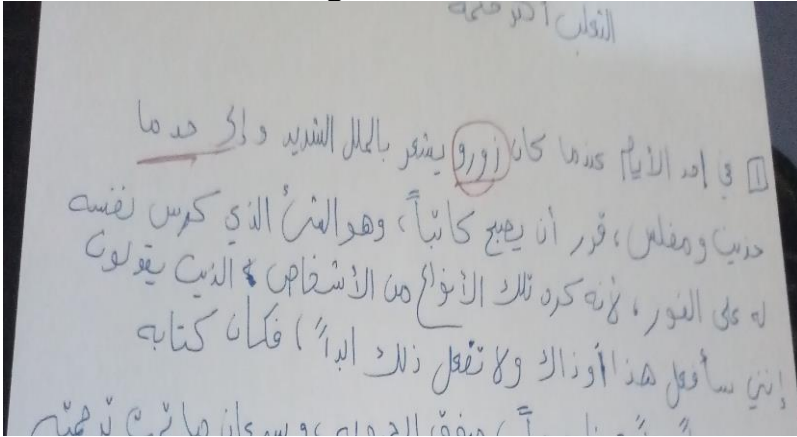 الثعلب أكثر حكمة
1 في احد الأيام عندما كان زورو يشعر بالملل الشديد و إلى حد ما
حزين ومفلس، قرر أن يصبح كاتباً، وهو الشئ الذي كرس نفسه
له على الفور، لأنه كره تلك الأنواع من الأشخاص الذين يقولون
إنني سأفعل هذا أوذاك ولا تفعل ذلك ابداً، فكان كتابه
جداً، وسرعان ما تمت ترجمته